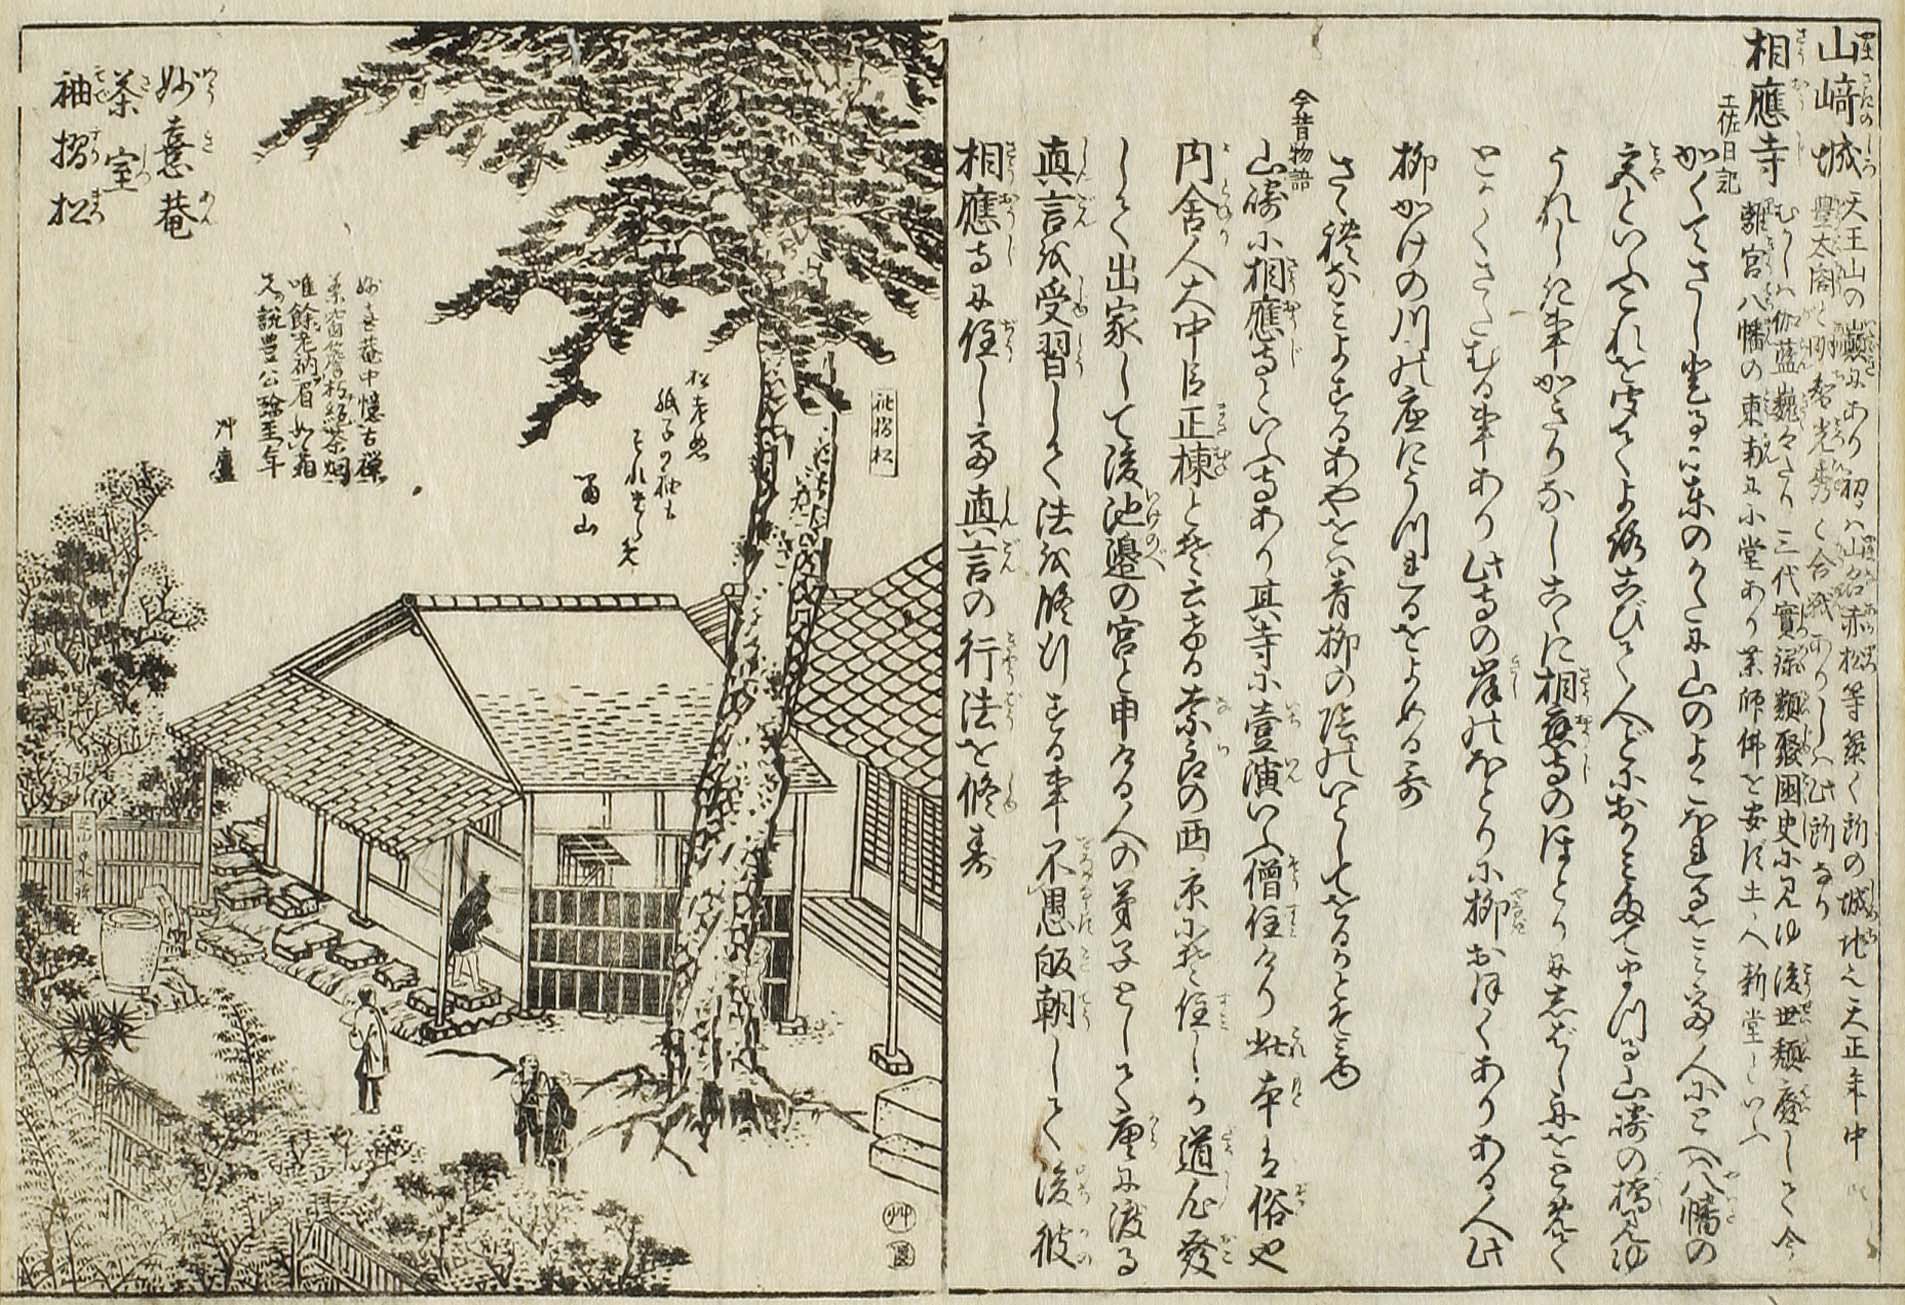 山﨑城 天王山の巓にあり初は山名赤松等築く所の城地也天正年中
豊太閤と明智光秀と合戦ありしは此所なり
相應寺 むかしは伽藍巍々たり三代實録類聚國史に見ゆ後世頽廢して今
離宮八幡の東南に小堂あり薬師佛を安ず土人新堂といふ
土佐日記
かくてさしのぼるに東のかたに山のよこをれるを見て人にとへば八幡の
宮といふこれを聞てよろこびて人々をがみ奉る山崎の橋見ゆ
うれしき事かぎりなしこゝに相應寺のほとりにしばし舟をとゞめて
とかくさだむる事あり此寺の岸のほとりに柳おほくありある人此
柳かげの川の底にうつれるを見てよめる哥
さゞ波よするあやをば青柳の陰のいとしており
今昔物語
山﨑に相應寺といふ寺あり其寺に壹演いふ僧住けり此本は俗也
内舎人大中臣正棟とぞ云ける奈良の西ノ京にぞ住しが道心發
して出家して後池邉の宮と申ける人の弟子として唐に渡る
真言を受習して法を修行する事不愚皈朝して後彼
相應寺に住して真言の行法を修す
妙喜菴
茶室
袖摺松
妙喜菴中憶古禅
唯餘老衲眉如霜
猶説豊公
袖摺松
松老ぬ
紙子の袖も